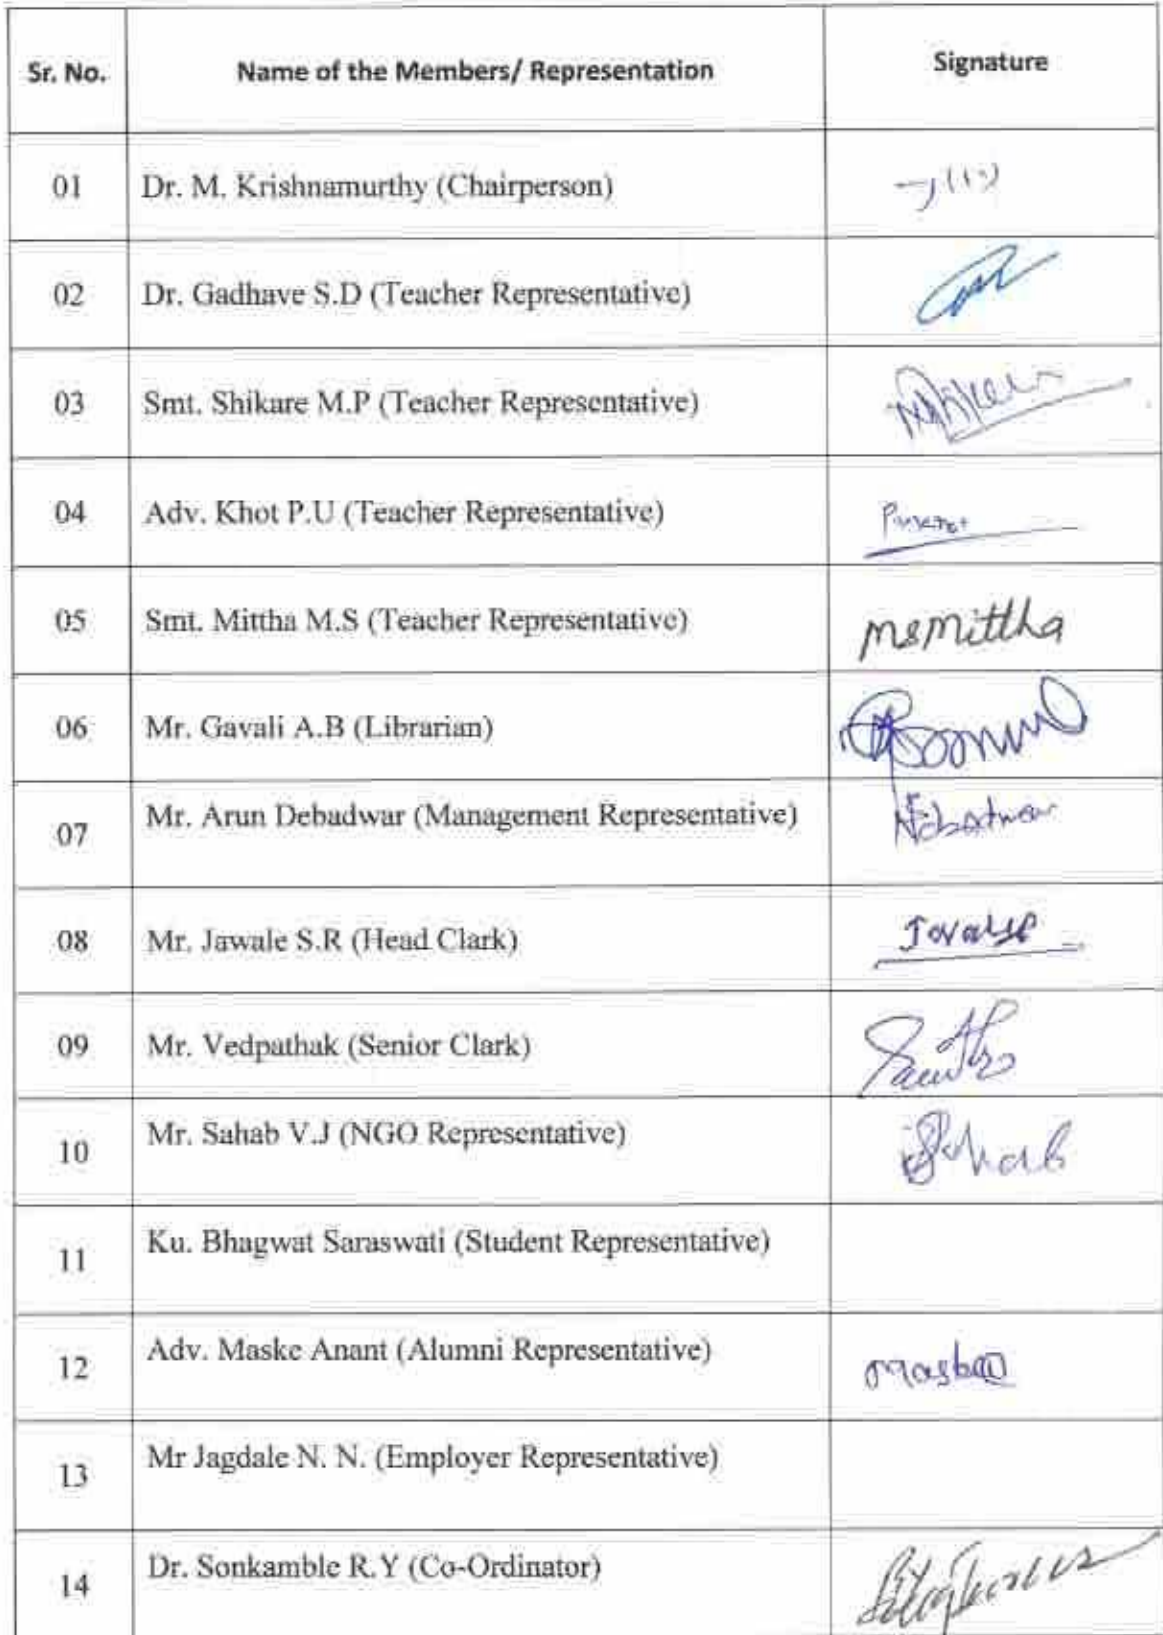 Sr. No. Name of the Members/ Representation Signature
01 Dr. M. Krishnamurthy (Chairperson)
02 Dr. Gadhave S.D (Teacher Representative)
03 Smt. Shikare M.P (Teacher Representative)
04 Adv. Khot P.U (Teacher Representative)
05 Smt. Mittha M.S (Teacher Representative) msmittha
06 Mr. Gavali A.B (Librarian)
07 Mr. Arun Debadwar (Management Representative)
08 Mr. Jawale S.R (Head Clark)
09 Mr. Vedpathak (Senior Clark)
10 Mr. Sahab V.J (NGO Representative)
11 Ku. Bhagwat Saraswati (Student Representative)
12 Adv. Maske Anant (Alumni Representative)
13 Mr Jagdale N. N. (Employer Representative)
14 Dr. Sonkamble R.Y (Co-Ordinator)